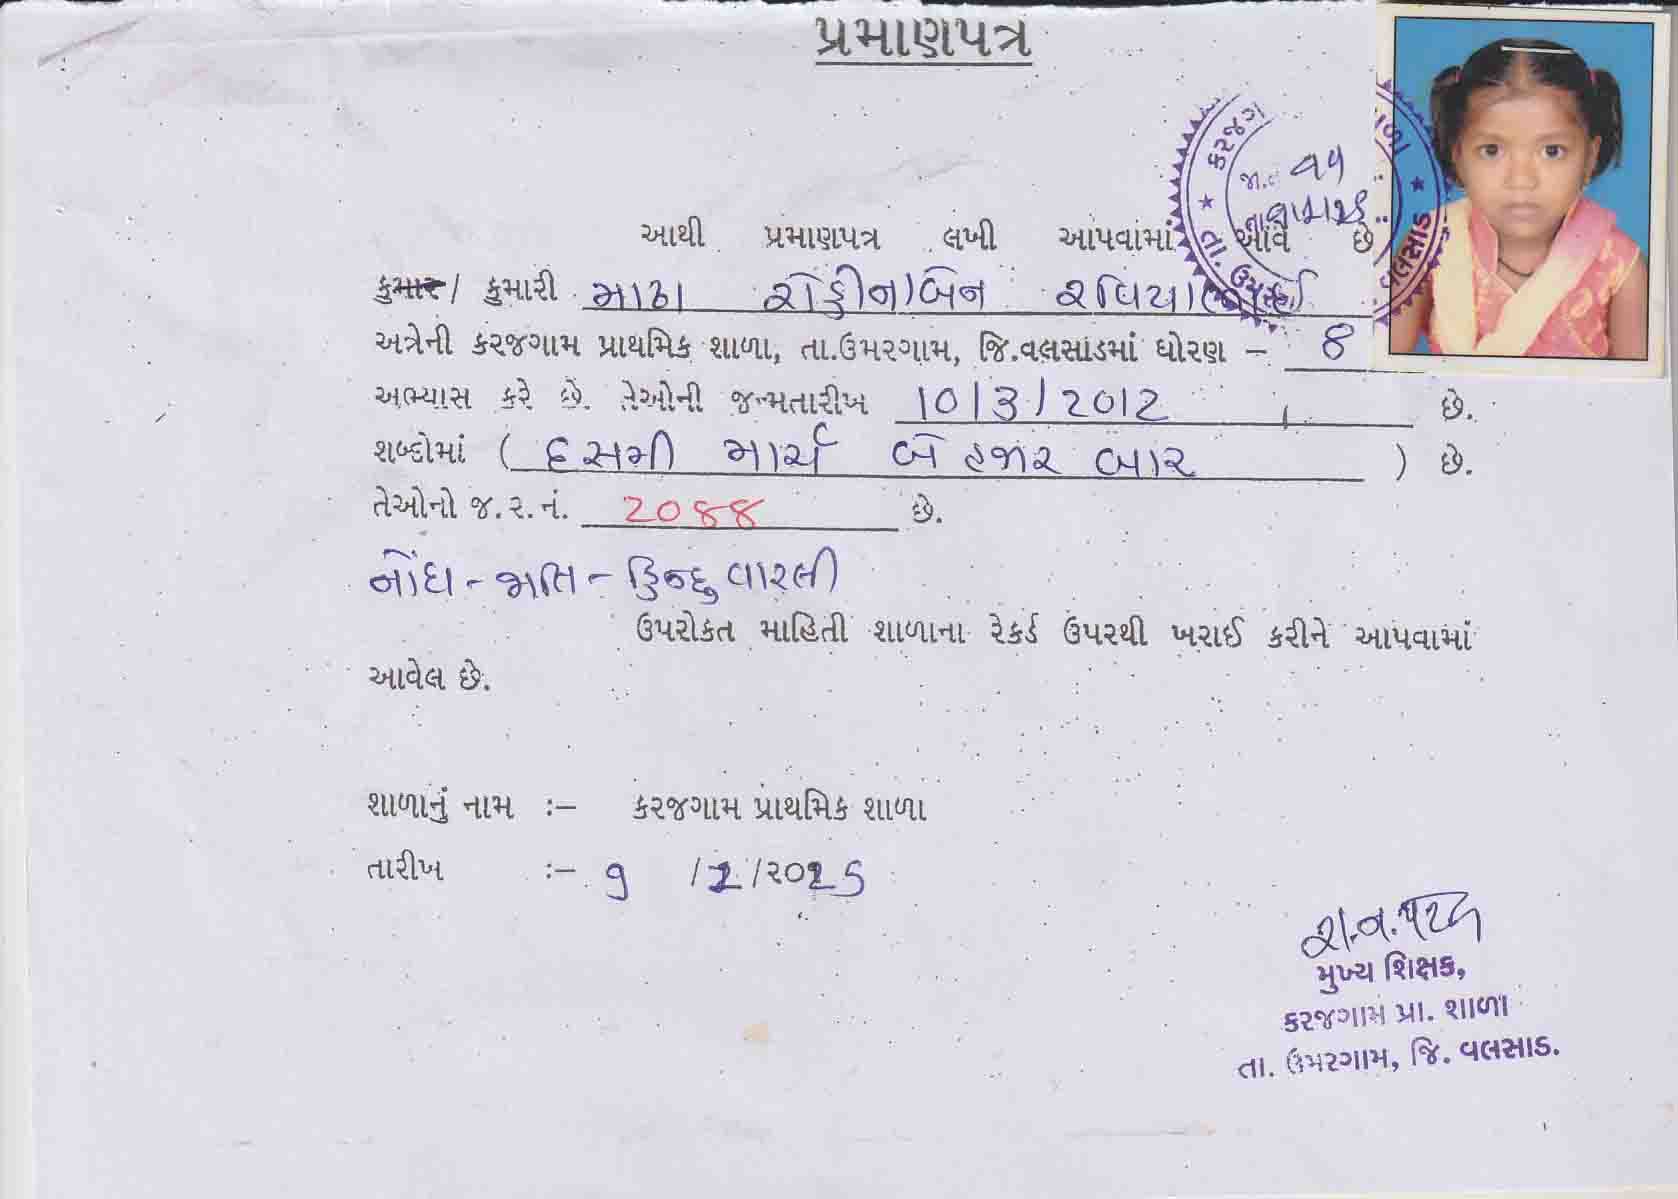 પ્રમાણપત્ર
કરજગ
તા. ઉમર
વલસાડ
આથી પ્રમાણપત્ર લખી આપવામાં આવે છે
કુમાર / કુમારી માઢા રોહીનાબેન રવિયાભાઈ
અત્રેની કરજગામ પ્રાથમિક શાળા, તા.ઉમરગામ, જિ.વલસાડમાં ધોરણ – 8
અભ્યાસ કરે છે. તેઓની જન્મતારીખ 10/3/2012 છે.
શબ્દોમાં ( દસમી માર્ચ બે હજાર બાર ) છે.
તેઓનો જ.ર.નં. 2088 છે.
નોંધ - જાતિ - હિન્દુ વારલી
ઉપરોકત માહિતી શાળાના રેકર્ડ ઉપરથી ખરાઈ કરીને આપવામાં
આવેલ છે.
શાળાનું નામ :– કરજગામ પ્રાથમિક શાળા
તારીખ :–
મુખ્ય શિક્ષક,
કરજગામ પ્રા. શાળા
તા. ઉમરગામ, જિ. વલસાડ.